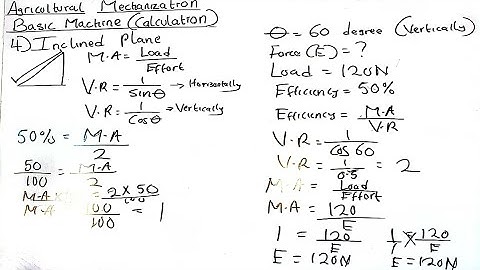 Agricultural Mechanization
Basic Machine (Calculation)
4) Inclined Plane
M.A = Load/Effort
V.R = 1/Sinθ → Horizontally
V.R = 1/Cosθ → Vertically
50% = M.A/2
50/100 = M.A/2
M.A = 2 x 50/100
M.A 100/100 = 1
θ = 60 degree (Vertically)
Force (E) = ?
Load = 120N
Efficiency = 50%
Efficiency = M.A/V.R
V.R = 1/Cos 60
V.R = 1/0.5 = 2
M.A = Load/Effort
M.A = 120/E
1 = 120/E 1/1 x 120/E
E = 120N E = 120N